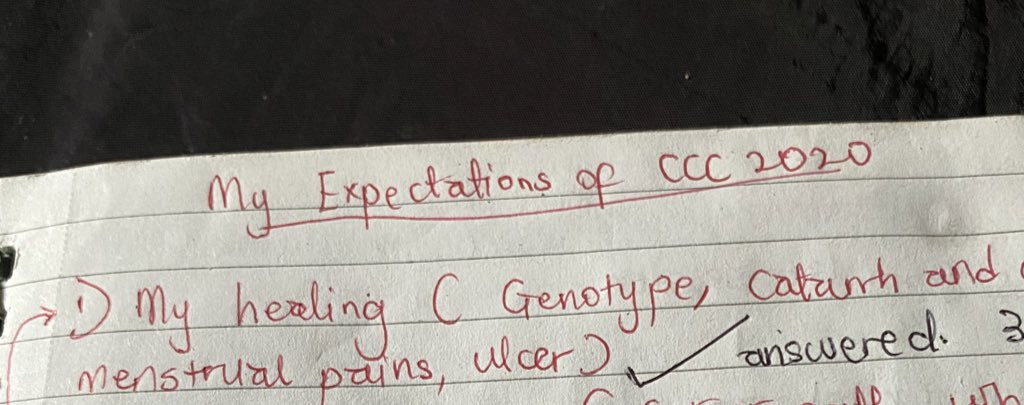 My Expectations of CCC 2020
1) My healing ( Genotype, Catarrh and
menstrual pains, ulcer) ✓ answered. 3